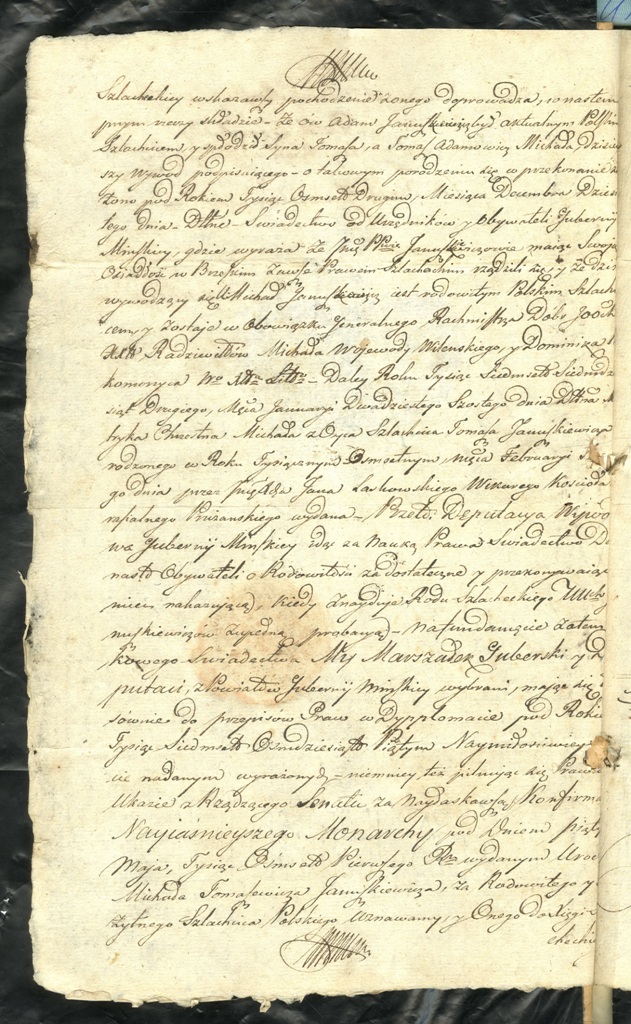 Szlacheckiey wskazawszy pochodzenie onego doprowadza, w nastem
pnym rzeczy składzie że ów Adam Januszkiewicz był aktualnym Polskim
Szlachcicem, y spłodził Syna Tomasza, a Tomasz Adamowicz Michała, dzisiey
szy Wywod podpisuiącego o takowym porodzeniu się w przekonanie
żono pod Rokiem Tysiąc Osmset Drugim, Miesiąca Decembra Dzies
tego dnia Dttne Swiadectwo od Urzędników y Obywateli Gubernij
Minskiey, gdzie wyraża że Januszkiewiczowie, maiąc Swoją
Osiadłość w Brzeskim zawsze Prawem Szlacheckim rządzili się, y że dziś
wywodzący się Michał Januszkiewicz iest rodowitym Polskim Szlach
cem, y zostaje w Obowiązku Generalnego Rachmistrza Dobr JOOch
XXX Radziwiłłów Michała Wojewody Wilenskiego, y Dominika
komorzyca Litto Daley Roku Tysiąc Siedmset Siedmdz
siąt Drugiego, Mca Januaryi Dwudziestego Szostego dnia Dttna M
tryka Chrzestna Michała z Oyca Szlachcica Tomasza Januszkiewicza
rodzonego w Roku Tysiącznym Osmsetnym, mca Februaryi
go dnia przez Jmć Xdza Jana Laskowskiego Wikarego Kościoła
rafialnego Prużanskiego wydana Przeto Deputacya Wywo
wa Gubernij Minskiey idąc za Nauką Prawa Swiadectwo
nastu Obywateli o Rodowitości za dostateczne y przekonywaiące
mieć nakazuiącą, kiedy znayduie Rodu Szlacheckiego
nuszkiewiczów zupełną probacyą na fundamencie zatem
kowego Swiadectwa My Marszałek Guberski y D
putaci, z Powiatów Gubernij Minskiey wybrani, maiąc się
sownie do przepisów Praw w Dypplomacie pod Rokiem
Tysiąc Siedmset Osmdziesiąt Piątym Naymiłościwiey
cie nadanym wyrażonych niemniey też pilnując się Prawa
Ukazie z Rządzącego Senatu za Naydaskawszą Konfirma
Nayiaśnieyszego Monarchy pod Dniem piąty
Maja, Tysiąc Osmset Pierwszego wydanym Uro
Michała Tomaszewicza Januszkiewicza, za Rodowitego y
żytnego Szlachcica Polskiego Uznawamy, y Onego do Xięgi
checkiey